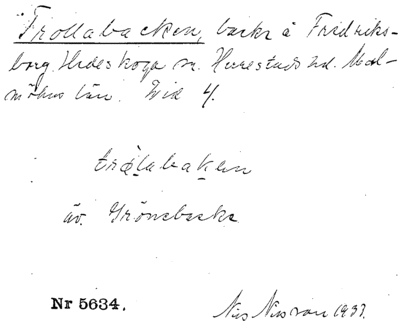 Trollabacken, backe å Fridriks-
borg, Hedeskoga sn. Herrestads hd. Mal-
möhus län. 4.
trålabaken
äv. Grönebacke
Nr 5634. Nils Nilsson 1937.